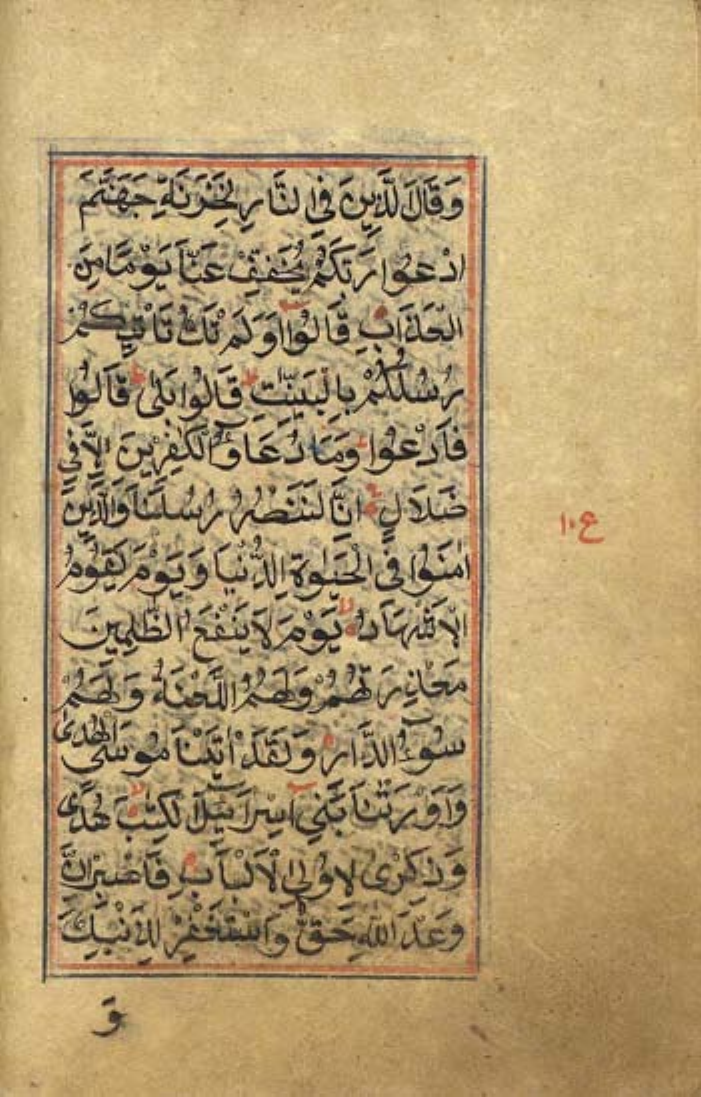 وَقَالَ لَّذِينَ فِي النَّارِ لِخَزَنَةِ جَهَنَّمَ
ادْعُوا رَبَّكُمْ يُخَفِّفْ عَنَّا يَوْمًا مِنَ
الْعَذَابِ قَالُوا اَوَلَمْ تَكُ تَاْتِيكُمْ
رُسُلُكُمْ بِالْبَيِّنٰتِ قَالُوا بَلٰى قَالُوا
فَادْعُوا وَمَا دُعَاؤُ الْكٰفِرِينَ اِلَّا فِي
ضَلَالٍ اِنَّا لَنَنْصُرُ رُسُلَنَا وَالَّذِينَ
اٰمَنُوا فِي الْحَيٰوةِ الدُّنْيَا وَيَوْمَ يَقُومُ
الْاَشْهَادُ يَوْمَ لَا يَنْفَعُ الظّٰلِمِينَ
مَعْذِرَتُهُمْ وَلَهُمُ اللَّعْنَةُ وَلَهُمْ
سُوءُ الدَّارِ وَلَقَدْ اٰتَيْنَا مُوسَى الْهُدٰى
وَاَوْرَثْنَا بَنِي اِسْرَائِيلَ الْكِتٰبَ هُدًى
وَذِكْرٰى لِاُولِي الْاَلْبَابِ فَاصْبِرْ اِنَّ
وَعْدَ اللّٰهِ حَقٌّ وَاسْتَغْفِرْ لِذَنْبِكَ
وَ
ع ١٠